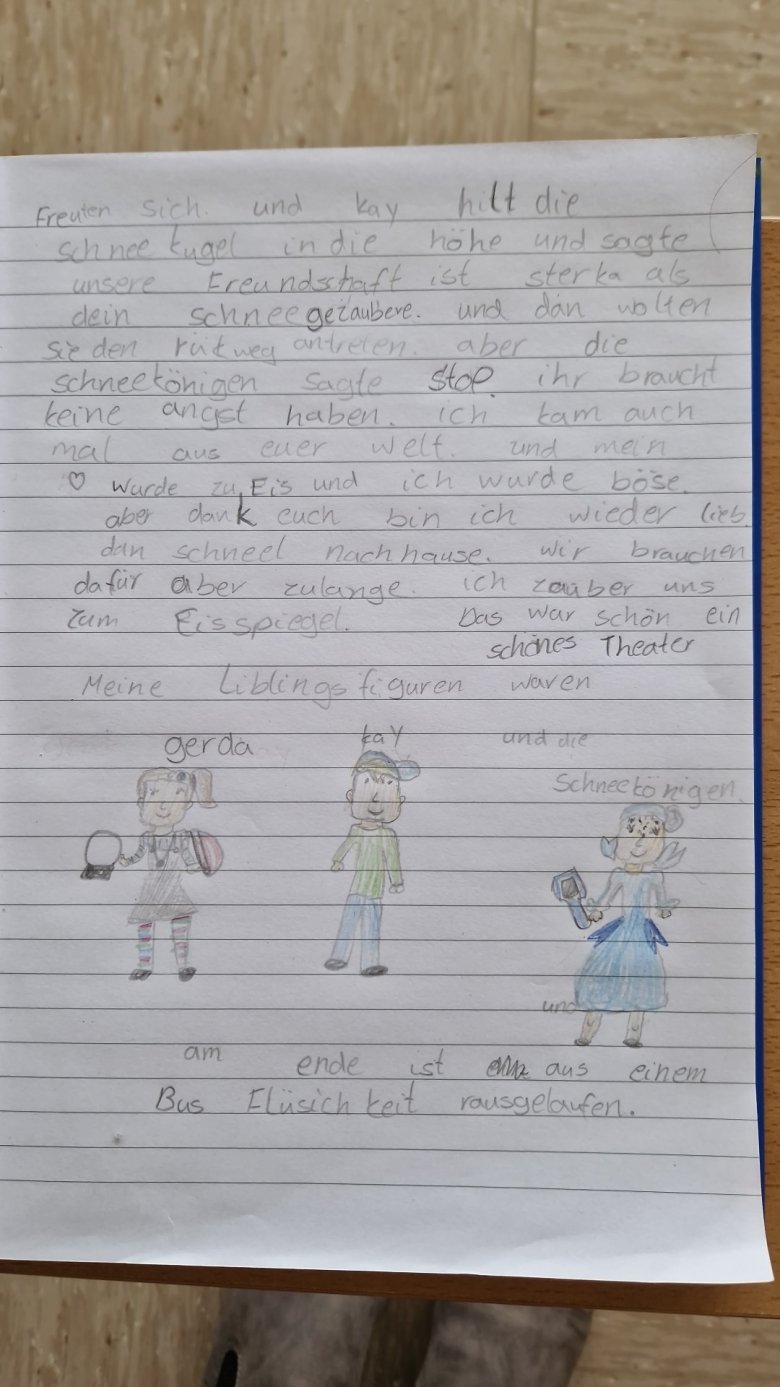 Freuten sich. und kay hillt die
schnee kugel in die höhe und sagte
unsere Freundschaft ist sterka als
dein schneegezaubere. und dan wolten
sie den rükweg antreten. aber die
schneekönigen sagte stop. ihr braucht
keine angst haben. ich kam auch
mal aus euer welt. und mein
♡ wurde zu Eis und ich wurde böse.
aber dank euch bin ich wieder lieb.
dan schneel nachhause. wir brauchen
dafür aber zulange. ich zauber uns
zum Eisspiegel. Das war schön ein
schönes Theater
Meine Liblingsfiguren waren
gerda kay und die
Schneekönigen.
und
am ende ist aus einem
Bus Flüsichkeit rausgelaufen.